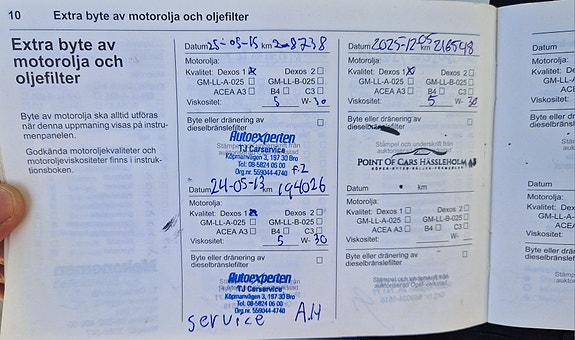 10 Extra byte av motorolja och oljefilter
Extra byte av
motorolja och
oljefilter
Byte av motorolja ska alltid utföras
när denna uppmaning visas på instru-
menpanelen.
Godkända motoroljekvaliteter och
motoroljeviskositeter finns i instruk-
tionsboken.
Datum 25-05-15 km 2 8738
Motorolja:
Kvalitet: Dexos 1 x Dexos 2
GM-LL-A-025 GM-LL-B-025
ACEA A3 B4 C3
Viskositet: 5 W- 30
Byte eller dränering av
dieselbränslefilter
Autoexperten
TJ Carservice
Köpmanvägen 3, 197 30 Bro
Tel: 08-5824 06 00
Org.nr. 559044-4740
Datum 24-05-13 km 194026
Motorolja:
Kvalitet: Dexos 1 x Dexos 2
GM-LL-A-025 GM-LL-B-025
ACEA A3 B4 C3
Viskositet: 5 W- 30
Byte eller dränering av
dieselbränslefilter
Autoexperten
TJ Carservice
Köpmanvägen 3, 197 30 Bro
Tel: 08-5824 06 00
Org.nr. 559044-4740
service A.H
Datum 2025-12-05 km 216548
Motorolja:
Kvalitet: Dexos 1 x Dexos 2
GM-LL-A-025 GM-LL-B-025
ACEA A3 B4 C3
Viskositet: 5 W- 30
Byte eller dränering av
dieselbränslefilter
Stämpel och underskrift från
POINT OF CARS HÄSSLEHOLM
Datum km
Motorolja:
Kvalitet: Dexos 1 Dexos 2
GM-LL-A-025 GM-LL-B-025
ACEA A3 B4 C3
Viskositet: W-
Byte eller dränering av
dieselbränslefilter
Stämpel och underskrift från
auktoriserad Opel-verkstad.
Datum
Motorolja:
Kvalitet: De
GM-LL-A
ACEA
Viskositet:
Byte eller drä
dieselbränslefi
Datum
Motorolja:
Kvalitet: De
GM-LL-A
ACEA
Viskositet:
Byte eller dr
dieselbränsle